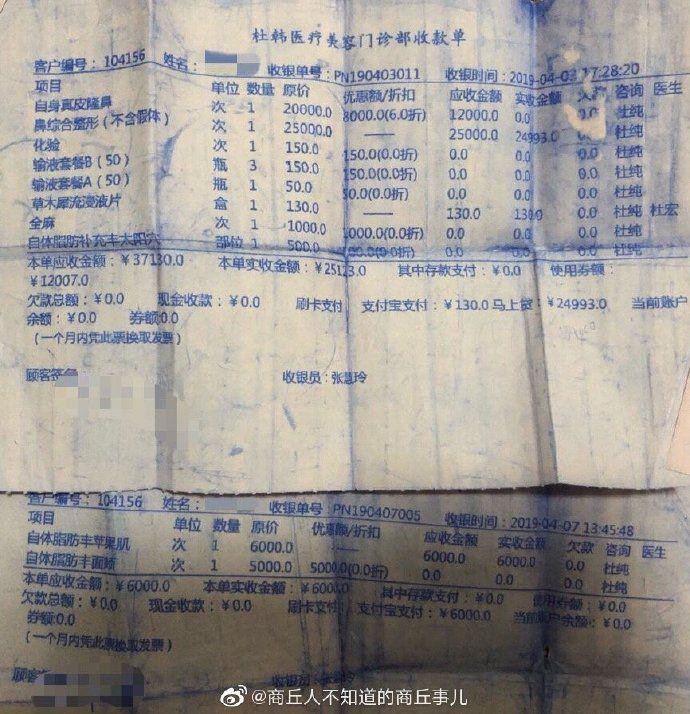 杜韩医疗美容门诊部收款单
客户编号：104156 姓名： 收银单号：PN190403011 收银时间：2019-04-03 17:28:20
项目 单位 数量 原价 优惠额/折扣 应收金额 实收金额 欠款 咨询 医生
自身真皮隆鼻 次 1 20000.0 8000.0(6.0折) 12000.0 0.0 0.0 杜纯
鼻综合整形（不含假体） 次 1 25000.0 —— 25000.0 24993.0 0.0 杜纯
化验 次 1 150.0 150.0(0.0折) 0.0 0.0 0.0 杜纯
输液套餐B（50） 瓶 3 150.0 150.0(0.0折) 0.0 0.0 0.0 杜纯
输液套餐A（50） 瓶 1 50.0 50.0(0.0折) 0.0 0.0 0.0 杜纯
草木犀流浸液片 盒 1 130.0 —— 130.0 130.0 0.0 杜纯 杜宏
全麻 次 1 1000.0 1000.0(0.0折) 0.0 0.0 0.0 杜纯
自体脂肪补充丰太阳穴 部位 1 500.0 500.0(0.0折) 0.0 0.0 0.0 杜纯
本单应收金额：￥37130.0 本单实收金额：￥25123.0 其中存款支付：￥0.0 使用券额：
￥12007.0
欠款总额：￥0.0 现金收款：￥0.0 刷卡支付 支付宝支付：￥130.0 马上贷：￥24993.0 当前账户
余额：￥0.0 券额:0.0
（一个月内凭此票换取发票）
顾客签名 收银员：张慧玲
客户编号：104156 姓名： 收银单号：PN190407005 收银时间：2019-04-07 13:45:48
项目 单位 数量 原价 优惠额/折扣 应收金额 实收金额 欠款 咨询 医生
自体脂肪丰苹果肌 次 1 6000.0 —— 6000.0 6000.0 0.0 杜纯
自体脂肪丰面颊 次 1 5000.0 5000.0(0.0折) 0.0 0.0 0.0 杜纯
本单应收金额：￥6000.0 本单实收金额：￥6000.0 其中存款支付：￥0.0 使用券额：￥0.0
欠款总额：￥0.0 现金收款：￥0.0 刷卡支付 支付宝支付：￥6000.0 当前账户余额：￥0.0
券额:0.0
（一个月内凭此票换取发票）
顾客 收银员
@商丘人不知道的商丘事儿